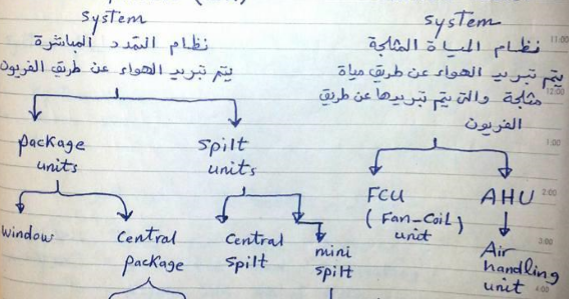 system
نظام التمدد المباشرة
يتم تبريد الهواء عن طريق الفريون
package
units
window
central
package
spilt
units
central
spilt
mini
spilt
system
نظام المياة المثلجة
يتم تبريد الهواء عن طريق مياة
مثلجة والتى يتم تبريدها عن طريق
الفريون
FCU
(Fan-Coil)
unit
AHU
Air
handling
unit
11:00
12:00
1:00
2:00
3:00
4:00